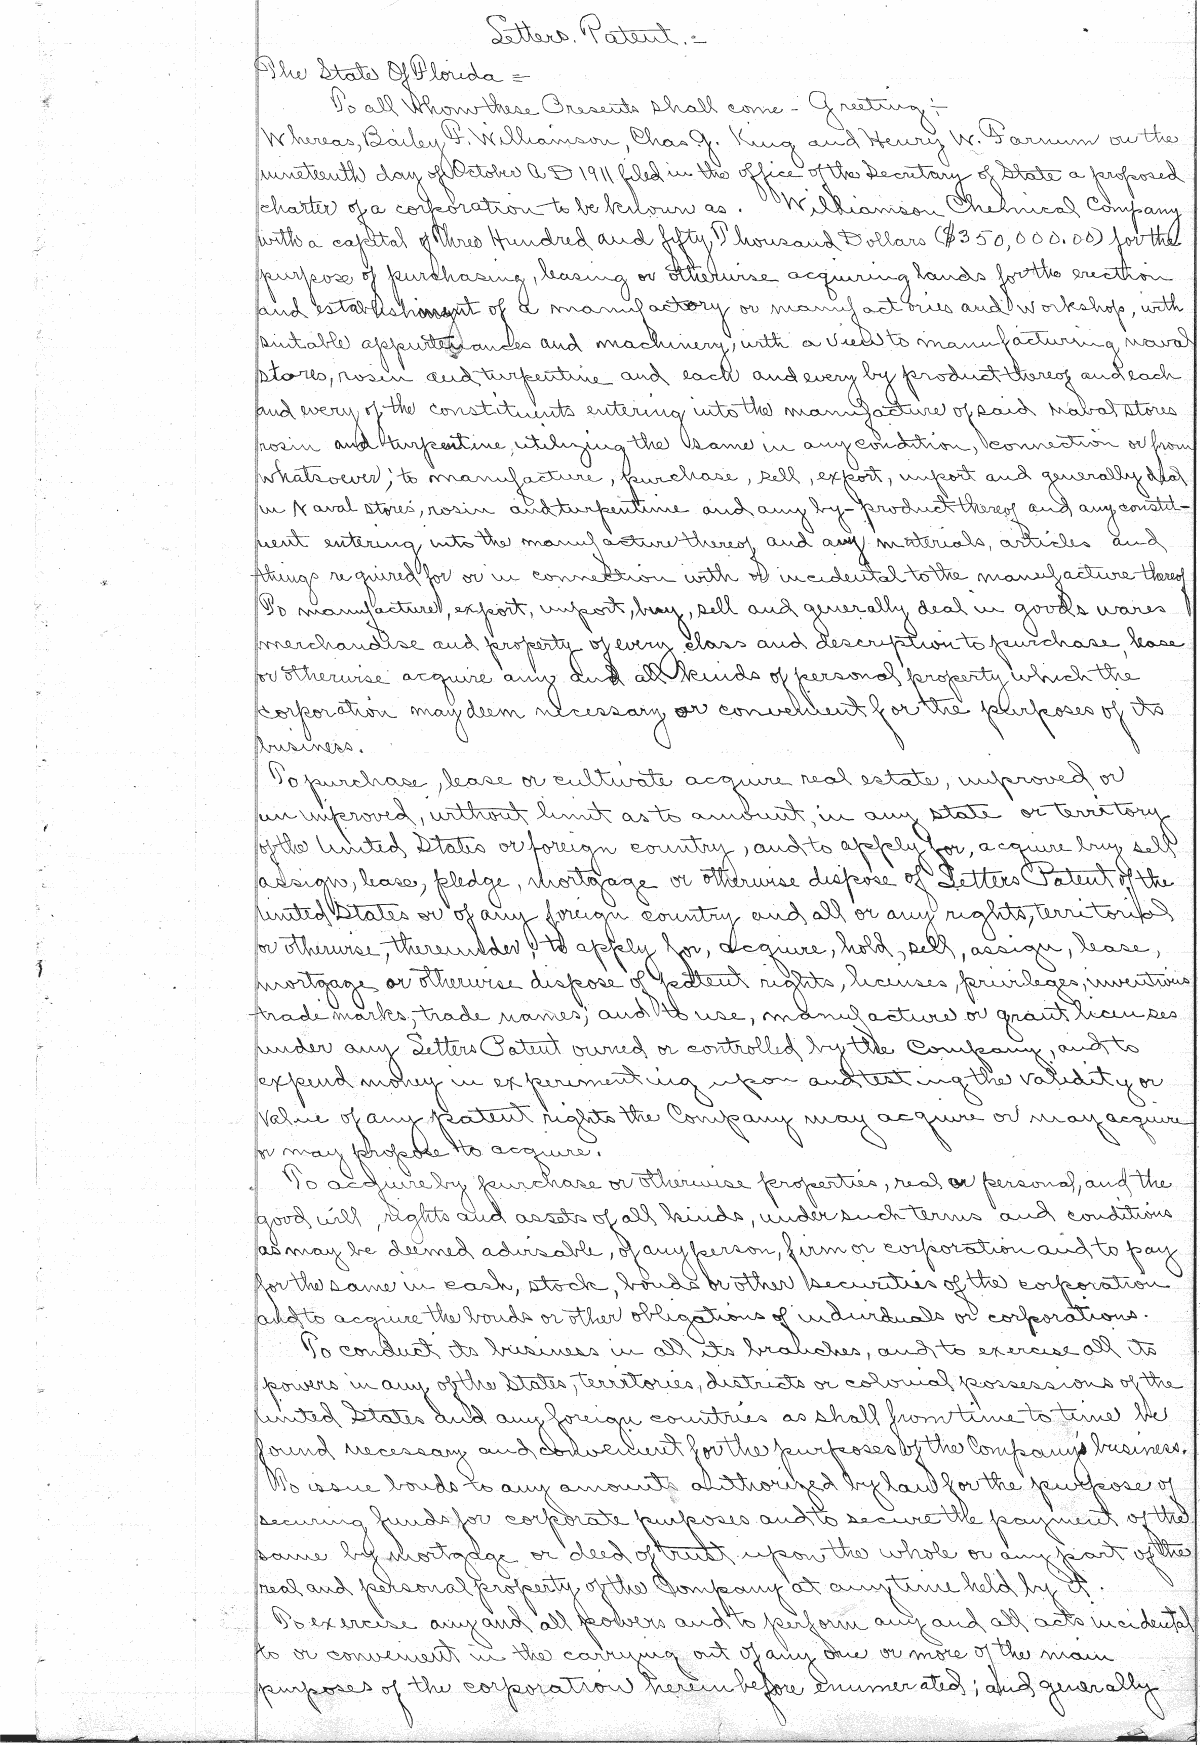 Letters. Patent. =
The State Of Florida =
To all Whom these Presents shall come - Greeting ÷
Whereas, Bailey F. Williamson, Chas G. King and Henry W. Farnum on the
nineteenth day of October A D 1911 filed in the office of the Secretary of State a proposed
charter of a corporation to be known as. Williamson Chemical Company
with a capital of Three Hundred and fifty, Thousand Dollars ($350,000.00) for the
purpose of purchasing, leasing or otherwise acquiring lands for the erection
and establishment of a manufactory or manufactories and workshop, with
suitable appurtenances and machinery, with a view to manufacturing naval
stores, rosin and turpentine and each and every by product thereof and each
and every of the constituents entering into the manufacture of said naval stores
rosin and turpentine, utilizing the same in any condition, connection or from
whatsoever; to manufacture, purchase, sell, export, import and generally deal
in Naval stores, rosin and turpentine and any by-product thereof and any constit-
uent entering into the manufacture thereof and any materials, articles and
things required for or in connection with or incidental to the manufacture thereof
To manufacture, export, import, buy, sell and generally deal in goods wares
merchandise and property of every class and description to purchase, lease
or otherwise acquire any and all kinds of personal property which the
corporation may deem necessary or convenient for the purposes of its
business.
To purchase, lease or cultivate acquire real estate, improved or
unimproved, without limit as to amount, in any state or territory
of the United States or foreign country, and to apply for, acquire buy sell
assign, lease, pledge, mortgage or otherwise dispose of Letters Patent of the
United States or of any foreign country and all or any rights, territorial
or otherwise, thereunder; to apply for, acquire, hold, sell, assign, lease,
mortgage or otherwise dispose of patent rights, licenses, privileges, inventions
trade marks, trade names; and to use, manufacture or grant licenses
under any Letters Patent owned or controlled by the Company, and to
expend money in experimenting upon and testing the validity or
value of any patent rights the Company may acquire or may acquire
or may propose to acquire.
To acquire by purchase or otherwise properties, real or personal, and the
good will, rights and assets of all kinds, under such terms and conditions
as may be deemed advisable, of any person, firm or corporation and to pay
for the same in cash, stock, bonds or other securities of the corporation
and to acquire the bonds or other obligations of individuals or corporations.
To conduct its business in all its branches, and to exercise all its
powers in any of the States, territories, districts or colonial possessions of the
United States and any foreign countries as shall from time to time be
found necessary and convenient for the purposes of the Company's business.
To issue bonds to any amounts authorized by law for the purpose of
securing funds for corporate purposes and to secure the payment of the
same by mortgage or deed of trust upon the whole or any part of the
real and personal property of the Company at any time held by it.
To exercise any and all powers and to perform any and all acts incidental
to or convenient in the carrying out of any one or more of the main
purposes of the corporation herein before enumerated; and generally